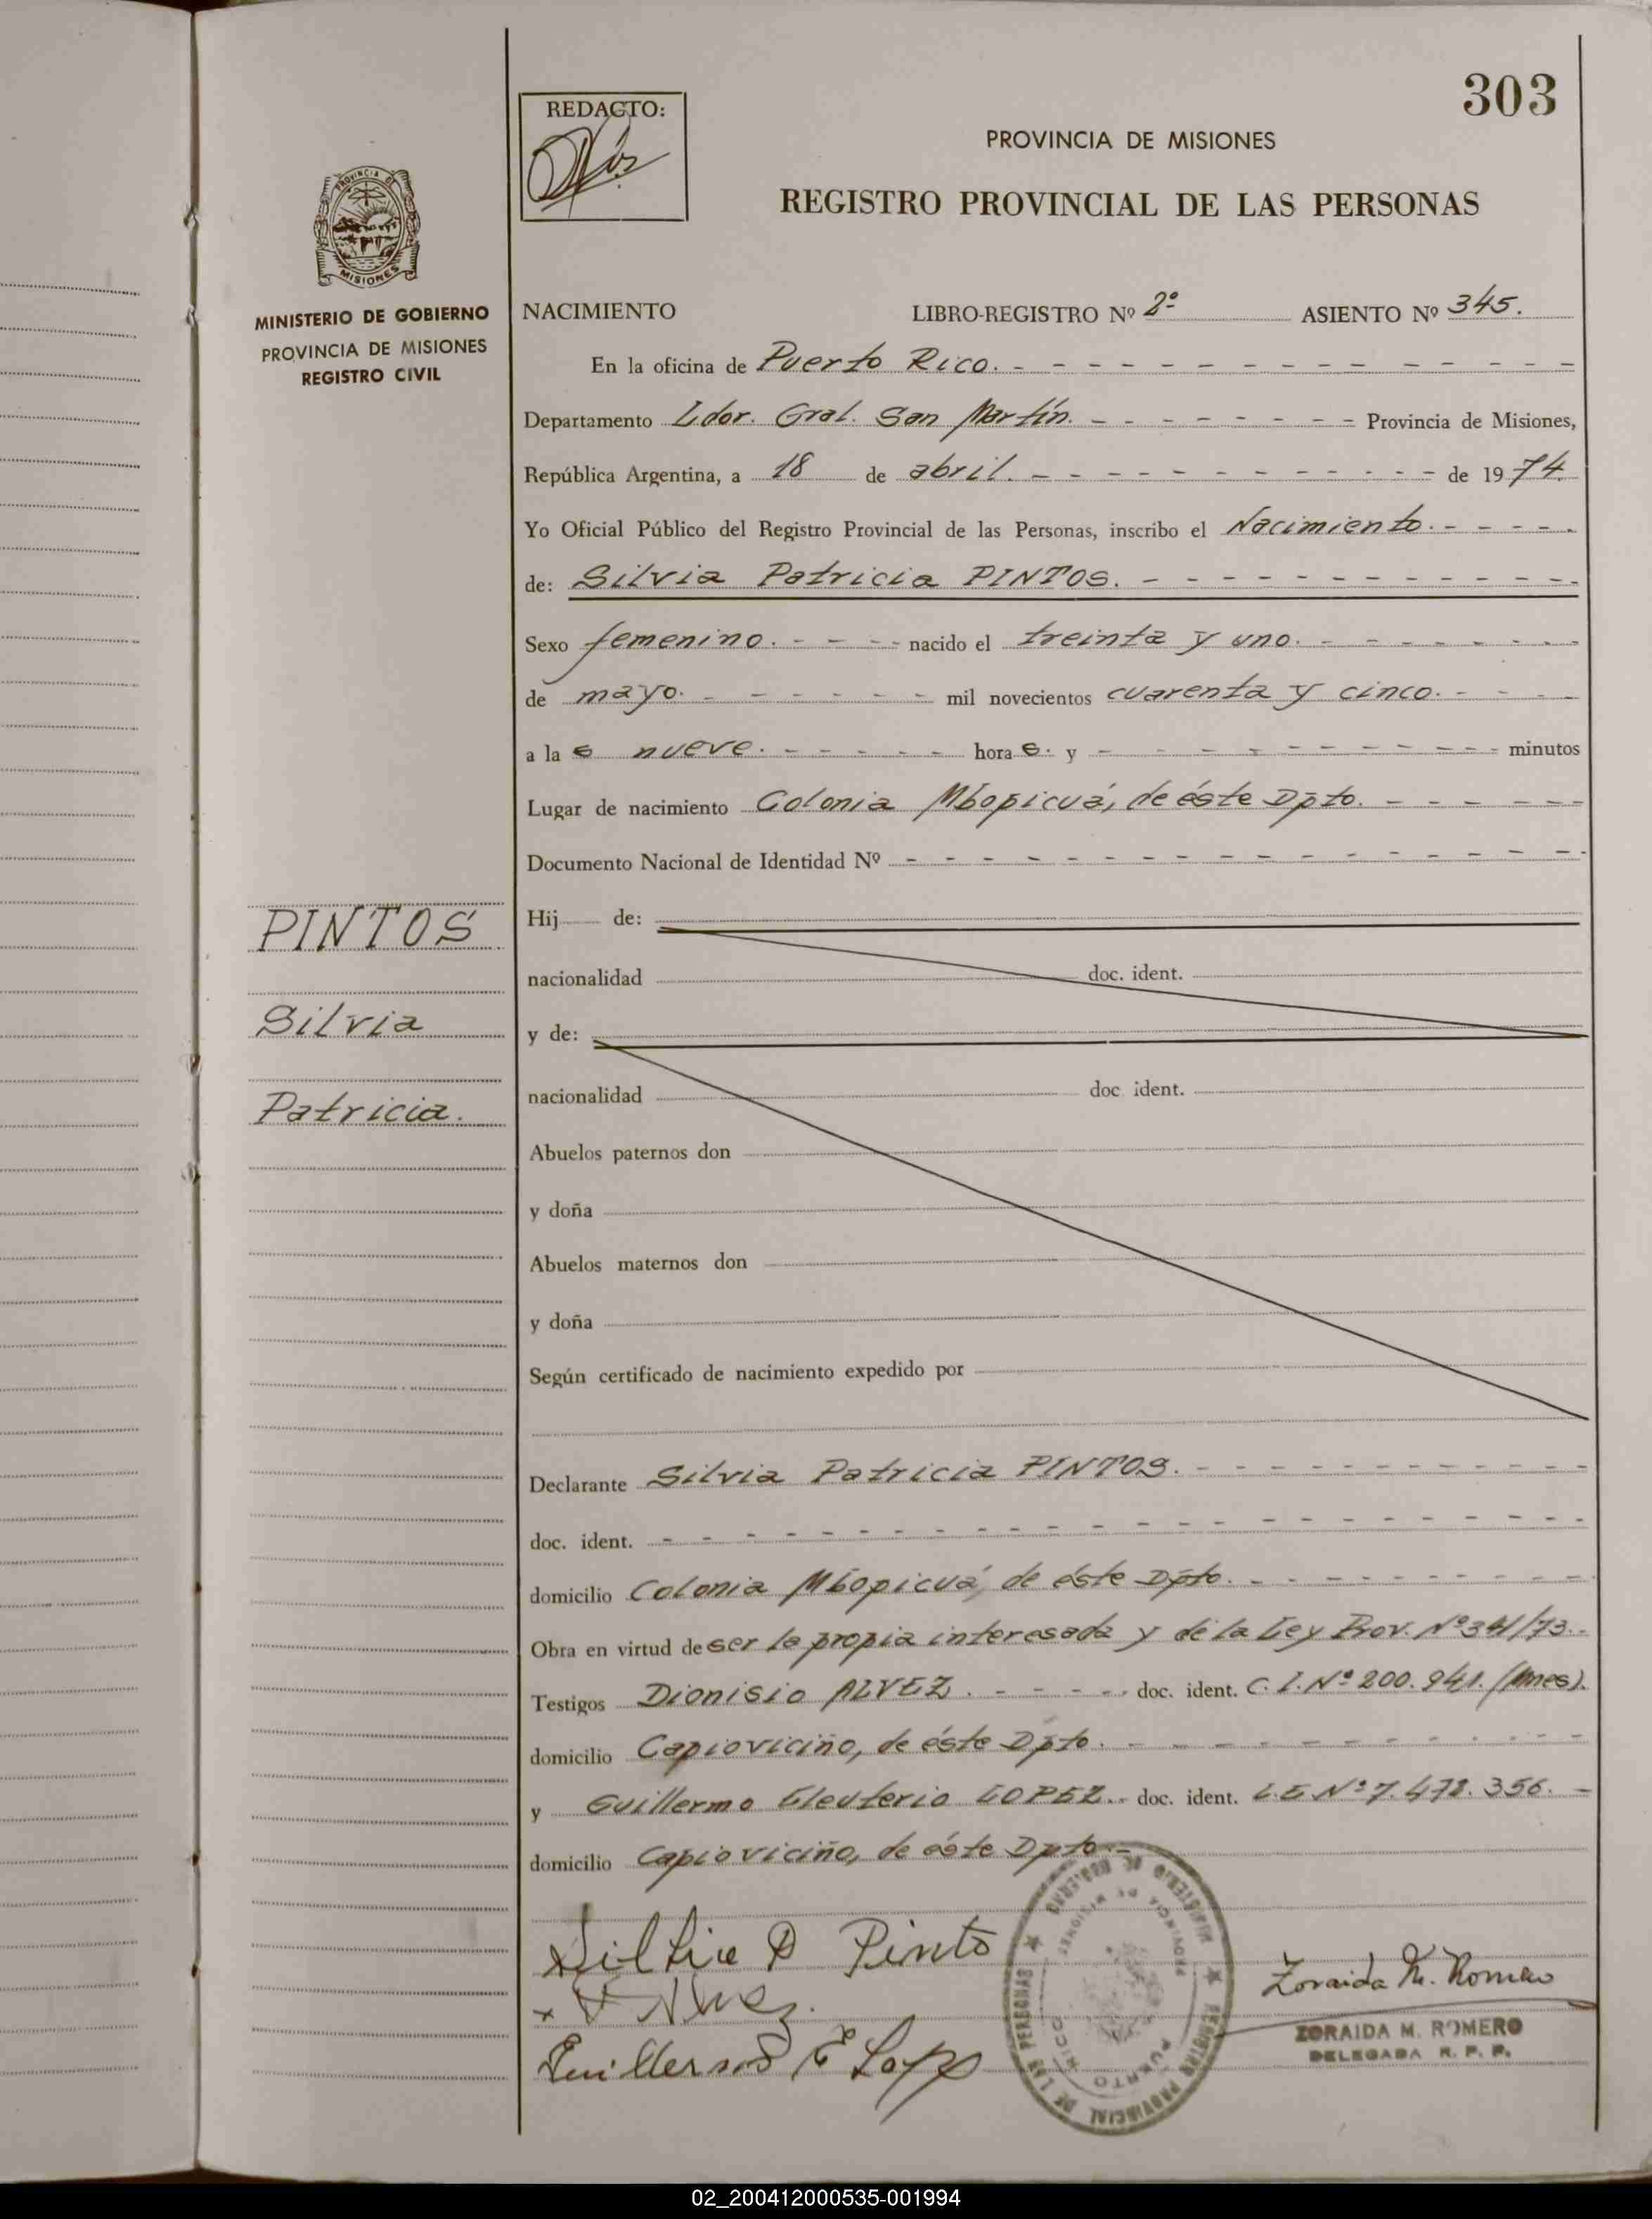 303
REDACTO:
PROVINCIA DE MISIONES
REGISTRO PROVINCIAL DE LAS PERSONAS
PROVINCIA DE MISIONES
MINISTERIO DE GOBIERNO
PROVINCIA DE MISIONES
REGISTRO CIVIL
NACIMIENTO LIBRO-REGISTRO Nº 2º ASIENTO Nº 345.
En la oficina de Puerto Rico.
Departamento Ldor. Gral. San Martín. Provincia de Misiones,
República Argentina, a 18 de abril. de 1974.
Yo Oficial Público del Registro Provincial de las Personas, inscribo el Nacimiento.
de: Silvia Patricia PINTOS.
Sexo femenino. nacido el treinta y uno.
de mayo. mil novecientos cuarenta y cinco.
a las nueve. horas. y minutos
Lugar de nacimiento Colonia Mbopicuá, de éste Dpto.
Documento Nacional de Identidad Nº
PINTOS
Silvia
Patricia.
Hij de:
nacionalidad doc. ident.
y de:
nacionalidad doc ident.
Abuelos paternos don
y doña
Abuelos maternos don
y doña
Según certificado de nacimiento expedido por
Declarante Silvia Patricia PINTOS.
doc. ident.
domicilio Colonia Mbopicuá, de éste Dpto.
Obra en virtud de ser la propia interesada y de la Ley Prov. Nº 341/73.
Testigos Dionisio ALVEZ. doc. ident. C.I. Nº 200.941. (Mnes).
domicilio Capioviciño, de éste Dpto.
y Guillermo Eleuterio LOPEZ. doc. ident. L.E. Nº 7.478.356.
domicilio Capioviciño, de éste Dpto.
Pinto
Guillermo E Lopez
MINISTERIO DE GOBIERNO
REGISTRO PROVINCIAL DE LAS PERSONAS
PROVINCIA DE MISIONES
PUERTO RICO
Zoraida M. Romero
ZORAIDA M. ROMERO
DELEGADA R. P. P.
02_200412000535-001994